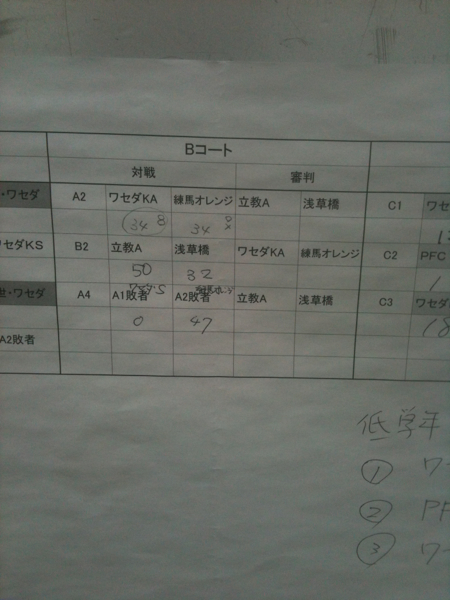 Bコート
対戦 審判
・ワセダ A2 ワセダKA 練馬オレンジ 立教A 浅草橋 C1 ワセ
34 8 34
ワセダKS B2 立教A 浅草橋 ワセダKA 練馬オレンジ C2 PFC
50 32 1
世・ワセダ A4 A1敗者 A2敗者 立教A 浅草橋 C3 ワセダ
0 47 18
A2敗者
低学年
① ワ
② PF
③ ワ